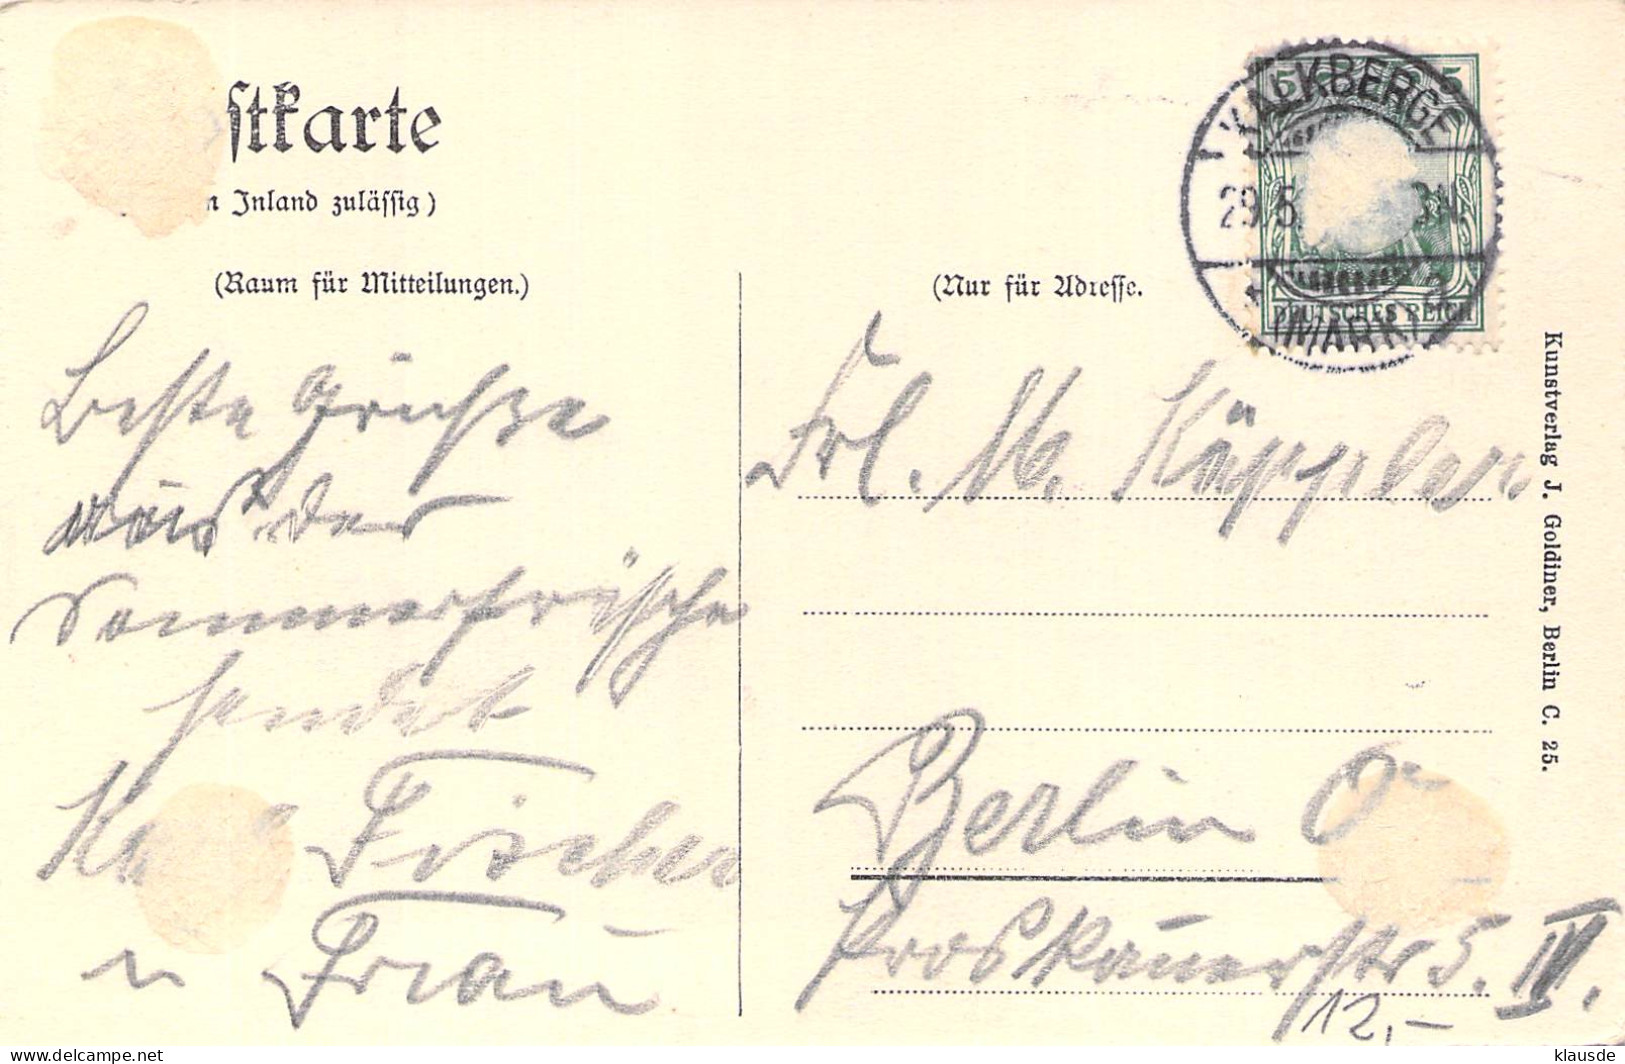 stkarte
n Inland zulässig)
(Raum für Mitteilungen.)
Beste Grüsse
aus der
Sommerfrische
sendet
Fischer
u Frau
(Nur für Adresse.
Frl. M. Käppler
Berlin O
Proskauerstr 5. IV.
12,-
KALKBERGE
29.5. N.
* (MARK)
5 5
DEUTSCHES REICH
Kunstverlag J. Goldiner, Berlin C. 25.
klausde
www.delcampe.net